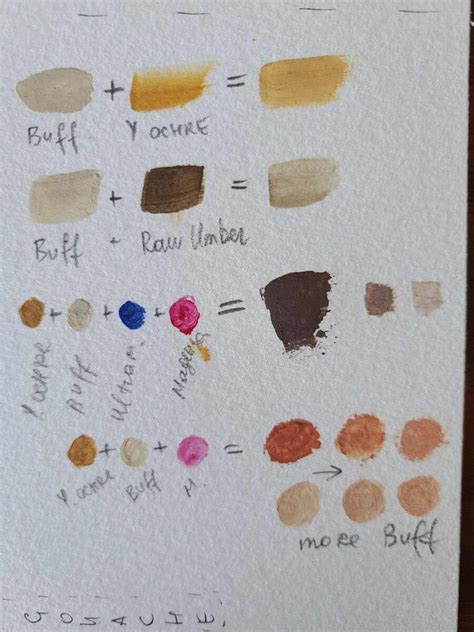 + =
Buff Y OCHRE
+ =
Buff + Raw Umber
+ + + =
Y. OCHRE Buff Ultram. Magenta
+ + = →
Y. OCHRE Buff M.
more Buff
GOUACHE.